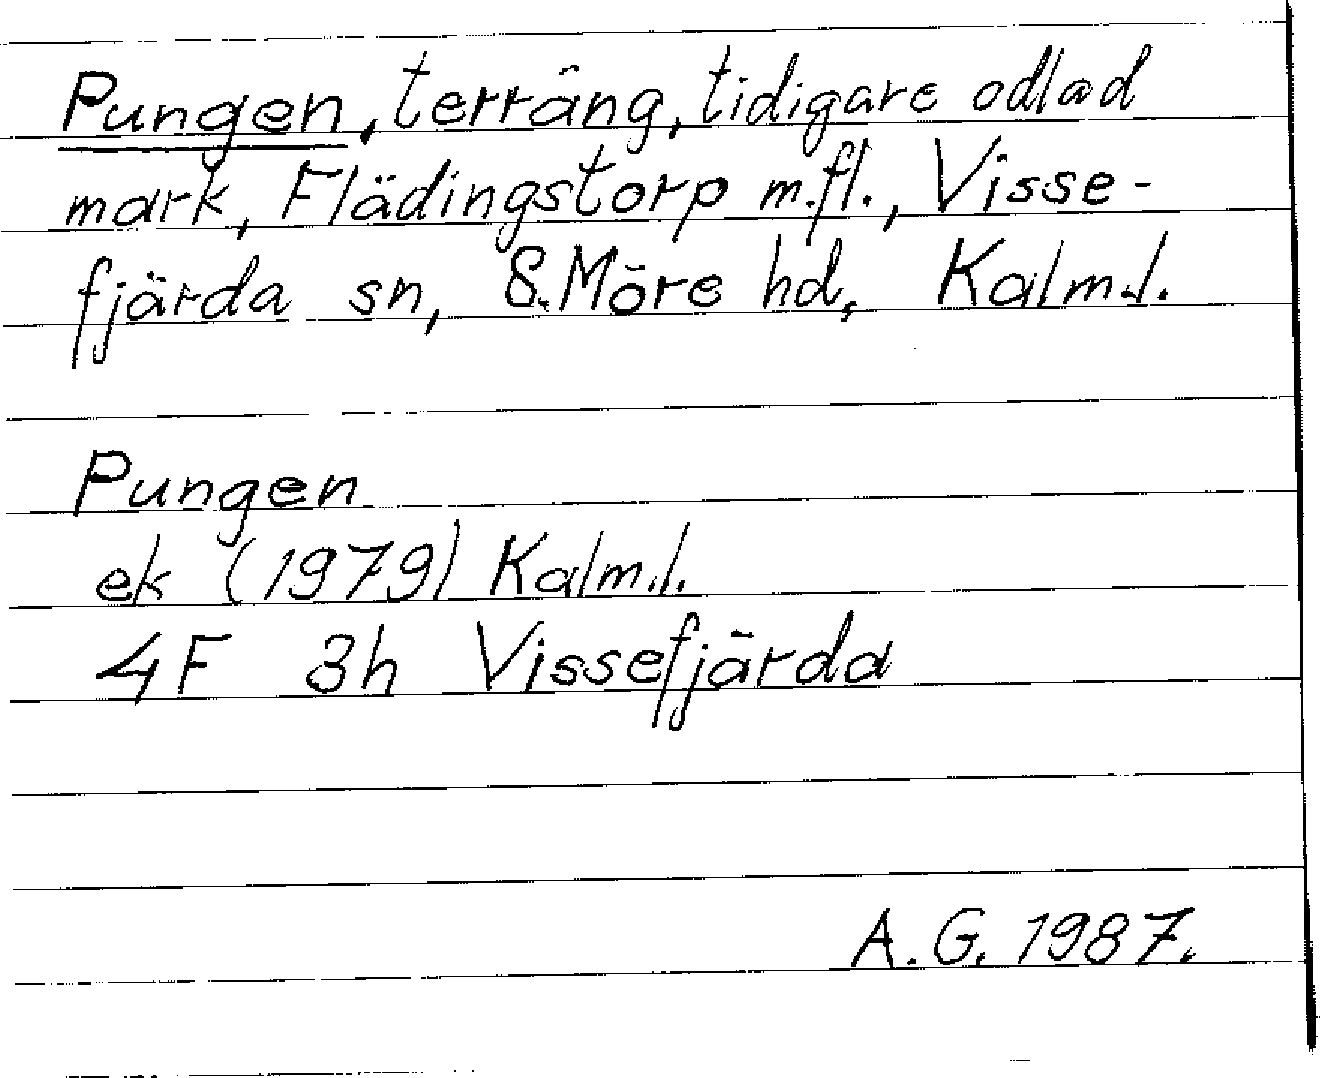 Pungen, terräng, tidigare odlad
mark, Flädingstorp m.fl., Visse-
fjärda sn, S. Möre hd, Kalm.l.
Pungen
ek (1979) Kalm.l.
4F 3h Vissefjärda
A.G. 1987.